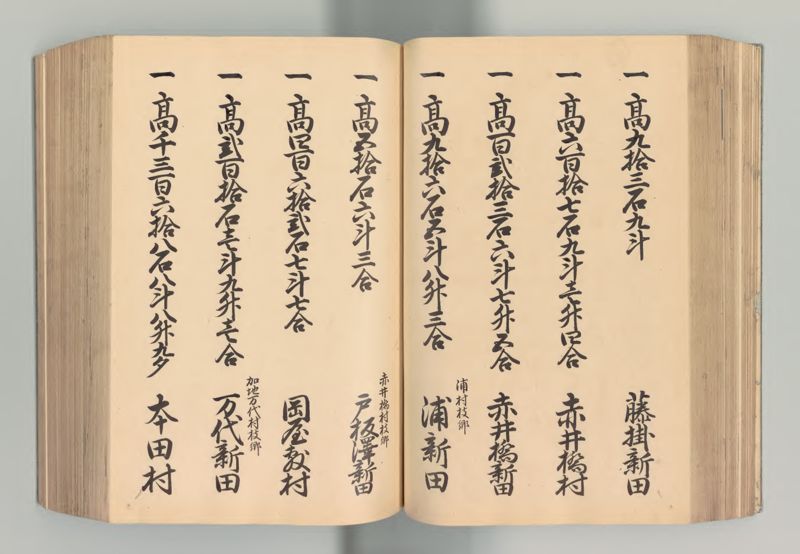 一 高九拾三石九斗 藤掛新田
一 高六百拾七石九斗壱升四合 赤井橋村
一 高百弐拾三石六斗七升五合 赤井橋新田
浦村枝郷
一 高九拾六石五斗八升三合 浦新田
赤井橋村枝郷
一 高五拾石六斗三合 戸板澤新田
一 高四百六拾弐石七斗七合 岡屋敷村
加地万代村枝郷
一 高弐百拾石壱斗九升壱合 万代新田
一 高千三百六拾八石八斗八升九夕 本田村